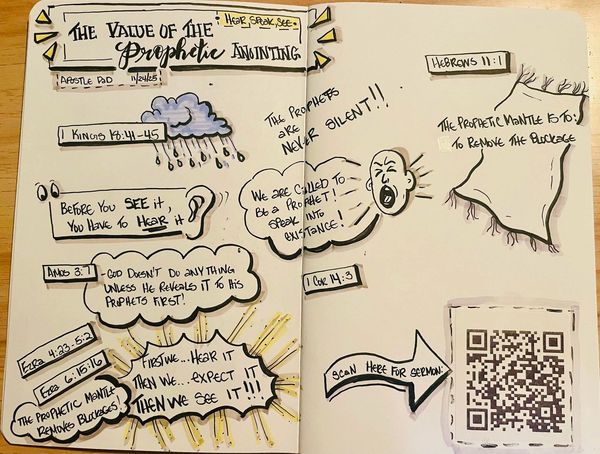 THE VALUE OF THE
Prophetic ANOINTING
HEAR, SPEAK, SEE
APOSTLE DAD
11/24/25
1 KINGS 18:41-45
BEFORE YOU SEE it,
YOU HAVE TO HEAR it
AMOS 3:7
-GOD DOESN'T DO ANYTHING
UNLESS HE REVEALS IT TO HIS
PROPHETS FIRST!
EZRA 4:23-5:2
EZRA 6:15-16
THE PROPHETIC MANTLE
REMOVES BLOCKAGES!
FIRST WE... HEAR IT
THEN WE... EXPECT IT
THEN WE SEE IT!!!
THE PROPHETS
ARE
NEVER SILENT!!
WE ARE CALLED TO
BE A PROPHET!
SPEAK INTO
EXISTANCE!
1 COR 14:3
HEBREWS 11:1
THE PROPHETIC MANTLE IS TO:
TO REMOVE THE BLOCKAGE
SCAN HERE FOR SERMON: